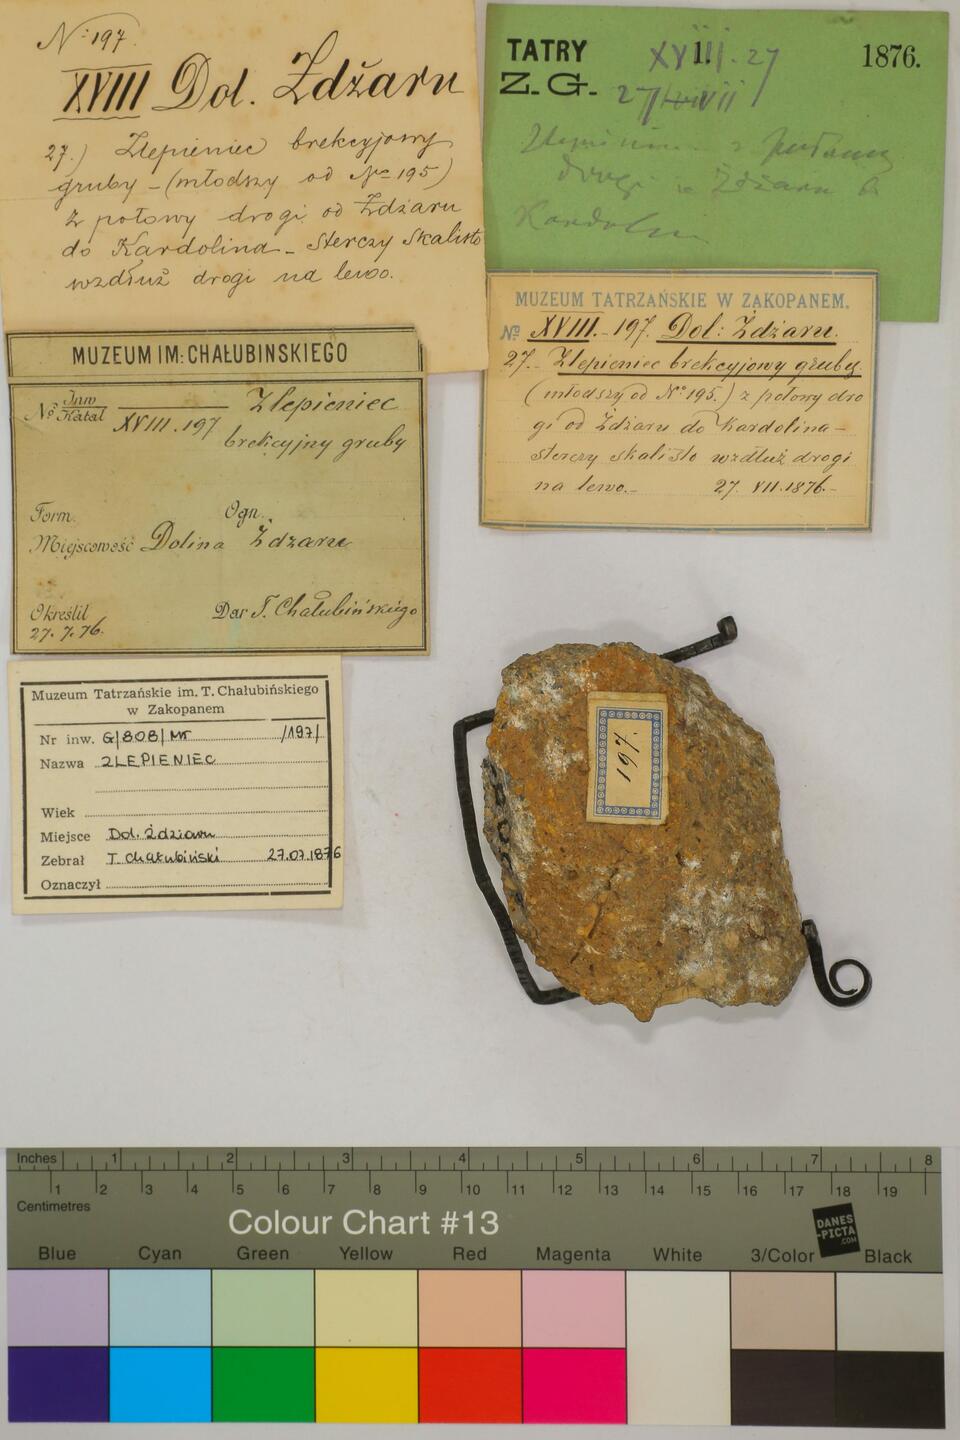 No 197.
XVIII Dol. Żdżaru
27.) Zlepieniec brekcyjowy
gruby - (młodszy od No 195)
z połowy drogi od Żdżaru
do Kardolina - sterczy skalisto
wzdłuż drogi na lewo.
TATRY 1. 1876.
XVIII. 27
Z. G.
drogi Żdżaru
MUZEUM TATRZAŃSKIE W ZAKOPANEM.
No XVIII. - 197. Dol: Żdżaru.
27. - Zlepieniec brekcyjowy gruby.
(młodszy od No 195.) z połowy dro
gi od Żdżaru do Kardolina -
sterczy skalisto wzdłuż drogi
na lewo. - 27. VII. 1876. -
MUZEUM IM: CHAŁUBINSKIEGO
No Inw Katal XVIII. 197 Zlepieniec
brekcyjny gruby
Form. Ogn.
Miejscowość Dolina Żdżaru
Określił Dar T. Chałubińskiego
27. 7. 76.
Muzeum Tatrzańskie im. T. Chałubińskiego
w Zakopanem
Nr inw. G/808/MT /197/
Nazwa ZLEPIENIEC
Wiek
Miejsce Dol. Żdziaru
Zebrał T. Chałubiński 27.07.1876
Oznaczył
197.
Inches 1 2 3 4 5 6 7 8
1 2 3 4 5 6 7 8 9 10 11 12 13 14 15 16 17 18 19
Centimetres
Colour Chart #13
DANES
-PICTA
.COM
Blue Cyan Green Yellow Red Magenta White 3/Color Black